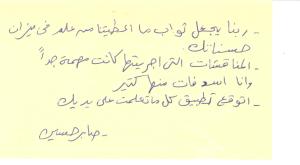 - ربنا يجعل ثواب ما اعطيتنا من علم فى ميزان
حسناتك
- المناقشات التى اجريتها كانت مهمة جداً
وانا استفدت منها كتير
- اتوقع تطبيق كل ما تعلمت على يديك
- صابر حسين